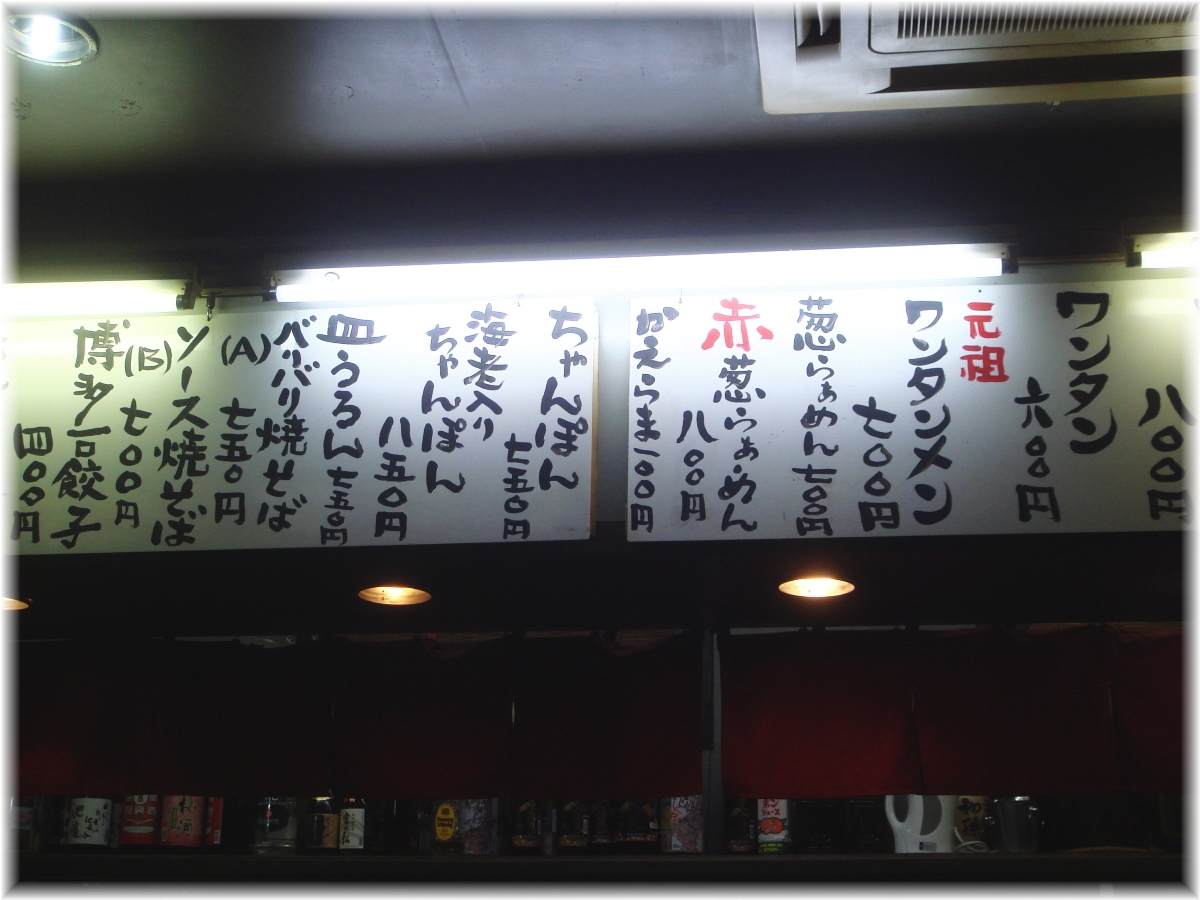 八〇〇円
ワンタン
六〇〇円
元祖
ワンタンメン
七〇〇円
葱らぁめん七〇〇円
赤葱らぁめん
八〇〇円
かえらま一〇〇円
ちゃんぽん
七五〇円
海老入り
ちゃんぽん
八五〇円
皿うるん七五〇円
バリバリ焼そば
(A)七五〇円
ソース焼そば
(B)七〇〇円
博多一口餃子
四〇〇円